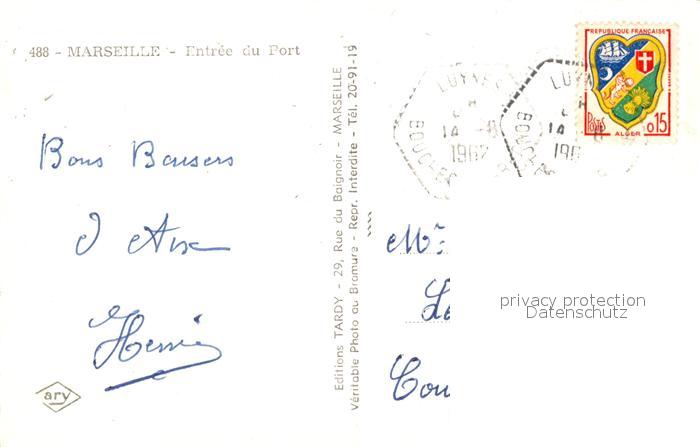 488 - MARSEILLE - Entrée du Port
Bons Baisers
d'Aix
Henri
ary
Editions TARDY - 29, Rue du Baignoir - MARSEILLE
Véritable Photo au Bromure - Repr. Interdite - Tél. 20-91-19
LUYNES
14
1962
BOUCHES
LUYN
14
196
BOUCH
REPUBLIQUE FRANÇAISE
POSTES
0,15
ALGER
Mr
privacy protection
Datenschutz